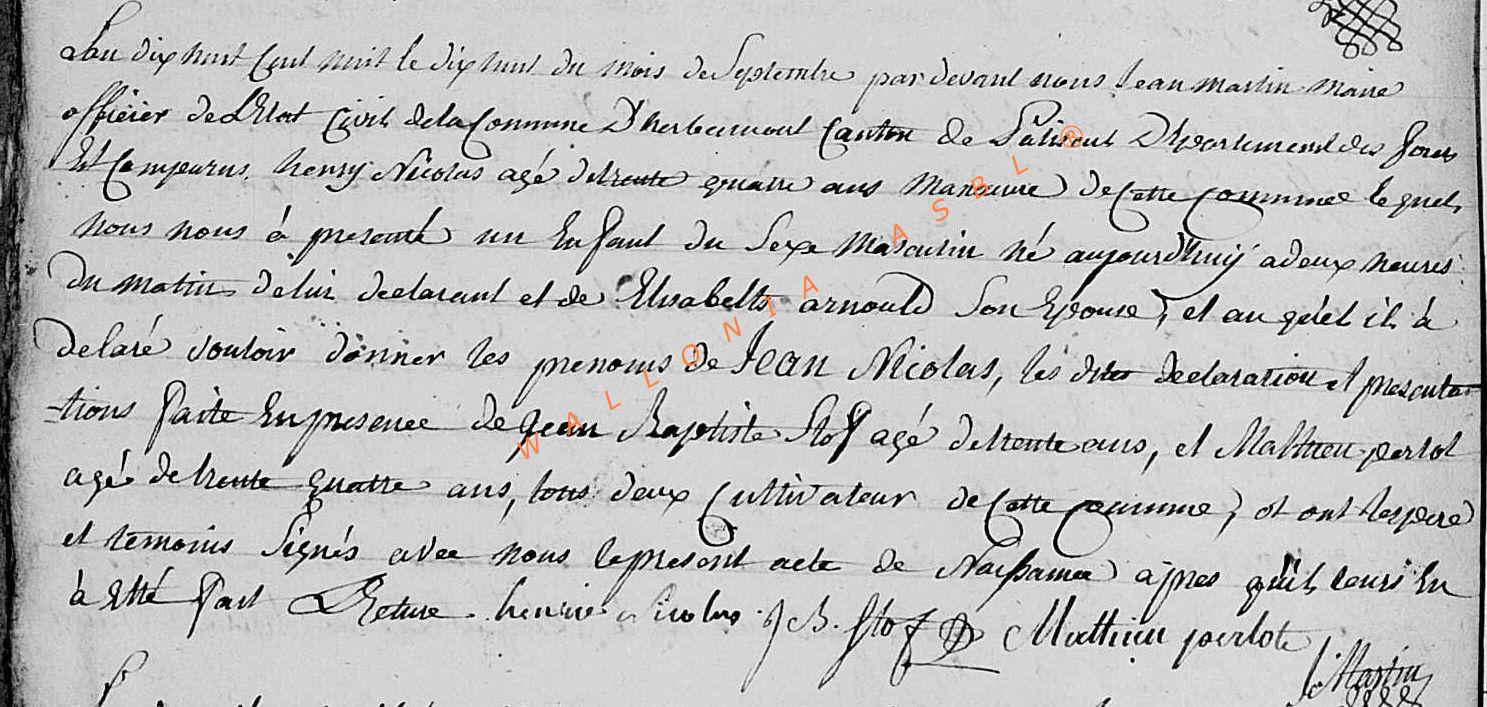 L'an dix huit Cent huit le dix huit du mois de Septembre par devant nous Jean Martin Maire
officier de L'Etat Civil de la Commune D'herbeumont Canton de Paliseul Département des forets
Est Comparus henry Nicolas agé de trente quatre ans Manœuvre de Cette Commune lequel
nous nous à presenté un Enfant du Sexe Masculin né aujourd'huij a deux heures
du matin de lui declarant et de Elisabeth arnould Son Epouse, et au quel il à
delaré vouloir donner les prenoms de Jean Nicolas, les dites declaration et presenta-
-tions faite En presence de Jean Baptiste Stof agé de trente ans, et Mathieu perlot
agé de trente quatre ans, tous deux Cultivateur de Cette Commune, et ont les pere
et temoins Signés avec nous le present acte de Naissance apres qu'il leurs En
à Etté fait Lecture. henrie Nicolas J B. Stof Mathieu perlot
J. Martin
WALLONIA ASBL ®